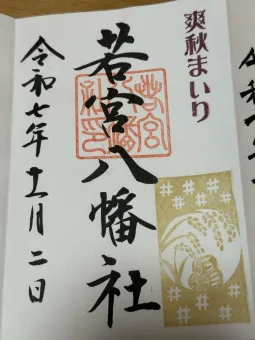 爽秋まいり
若宮八幡社
令和七年十一月二日